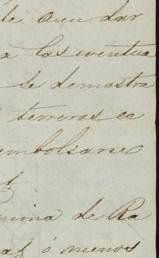 de aun dar
a las eventua
se demostra
terreros ca
embolsare
y
mina de Ra
as ó menos